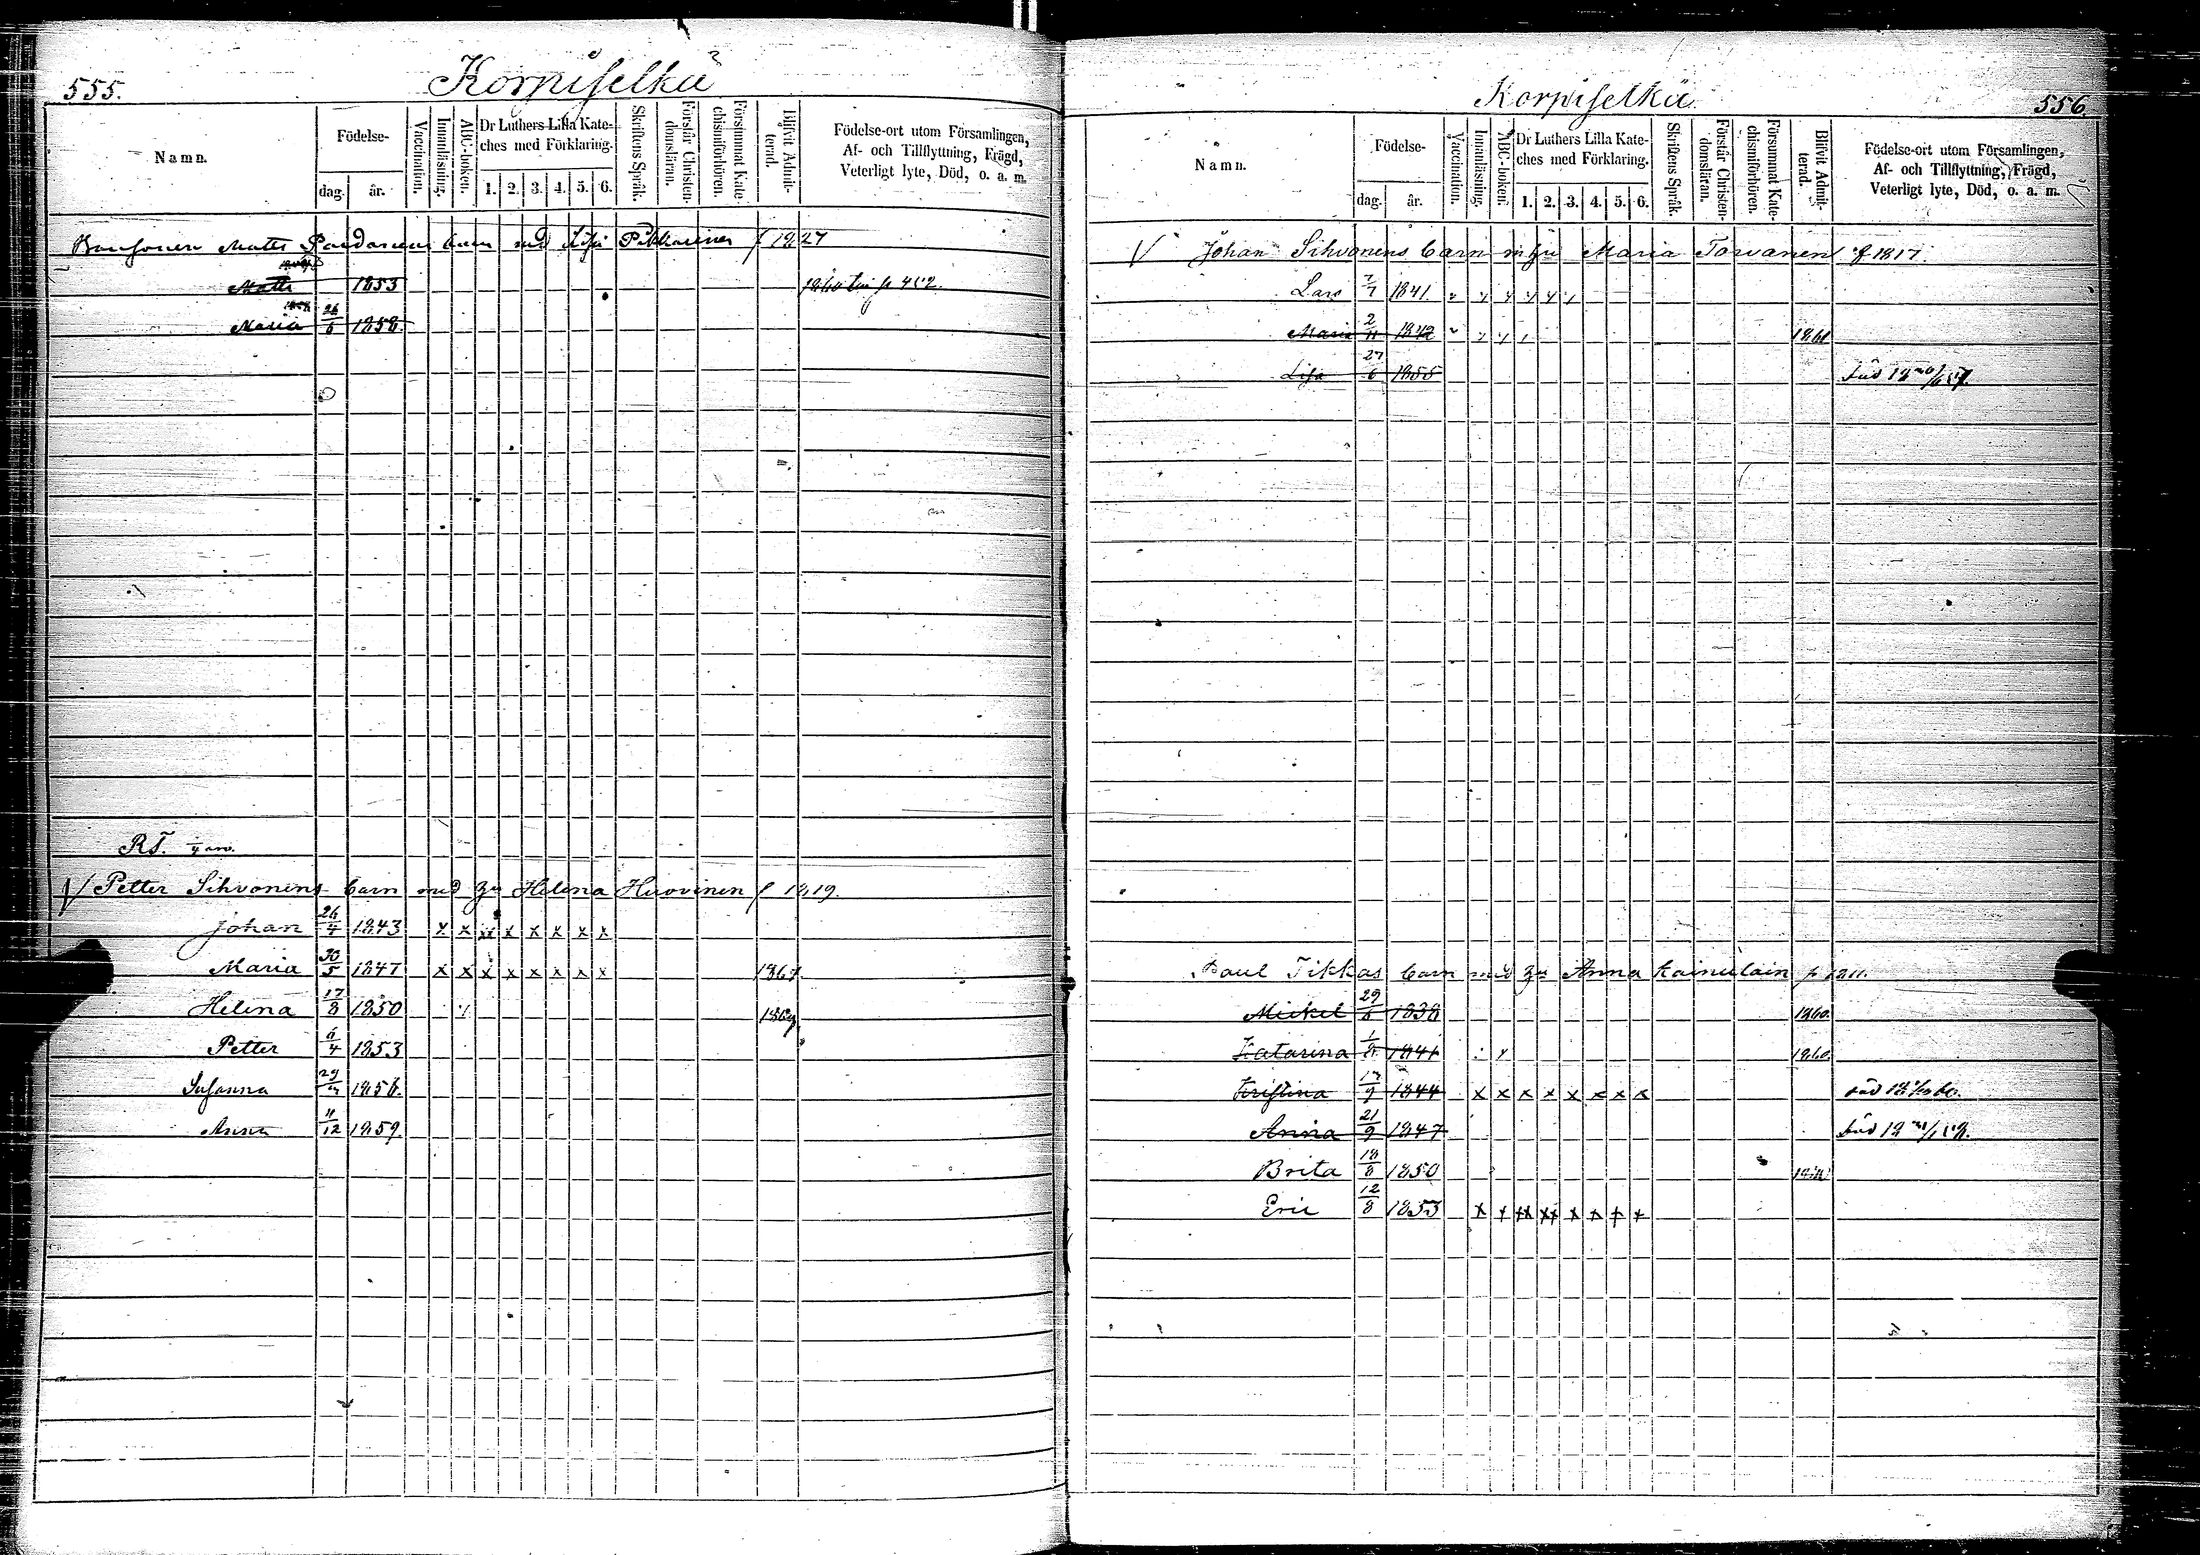 555.
Korpiselkä
Namn.
Födelse-
dag.
år.
Vaccination.
Innanläsning.
ABC-boken.
Dr Luthers Lilla Kate-
ches med Förklaring.
1. 2. 3. 4. 5. 6.
Skriftens Språk.
Förstår Christen-
domsläran.
Försummat Kate-
chismiförhören.
Blifvit Admit-
terad.
Födelse-ort utom Församlingen,
Af- och Tillflyttning, Frägd,
Veterligt lyte, Död, o. a. m.
Matts barn med Lisa Pikkarinen f 1827
Matts 1853
Maria 1858
RT.
Petter Sihvonens barn med Helena Huovinen f 1819.
Johan 26/4 1843 x x xx x x x x x
Maria 30/5 1847 x x x x x x x x 1867
Helena 17/8 1850 1869
Petter 6/4 1853
Susanna 1856.
Anna 11/12 1859.
Korpiselkä
556.
Namn.
Födelse-
dag.
år.
Vaccination.
Innanläsning.
ABC-boken.
Dr Luthers Lilla Kate-
ches med Förklaring.
1. 2. 3. 4. 5. 6.
Skriftens Språk.
Förstår Christen-
domsläran.
Försummat Kate-
chismiförhören.
Blifvit Admit-
terad.
Födelse-ort utom Församlingen,
Af- och Tillflyttning, Frägd,
Veterligt lyte, Död, o. a. m.
Johan Sihvonens barn Maria Torvanen f 1817.
Lars 7/7 1841.
Maria 2/11 1842
Lisa 27/6 1855 död
Paul Tikkas barn med Anna Kainulain f 1811.
Mickel 29/6 1838 1860.
Katarina 1/8 1841 1860.
Kristina 1844 x x x x x x x x död
Anna 21/9 1847 död
Brita 18/8 1850
Eric 12/8 1853 x x xx xx x x x x